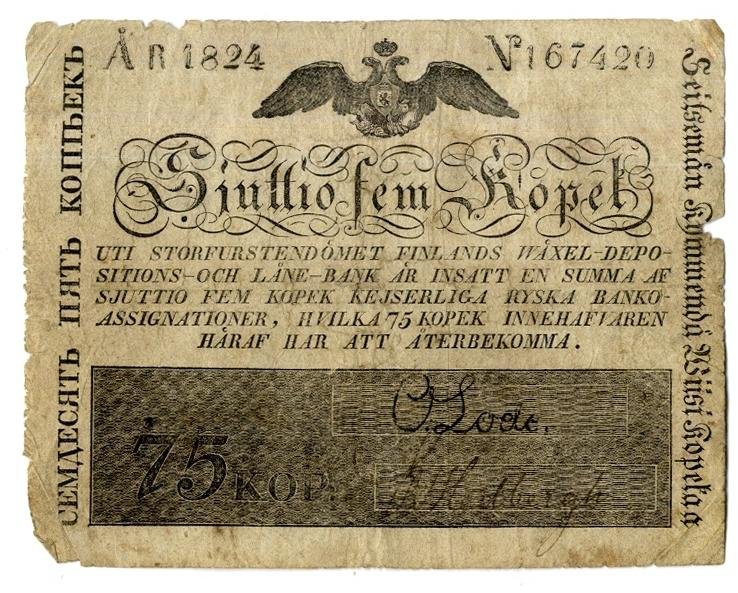 År 1824 No 167420
Sjuttio fem Kopek
UTI STORFURSTENDÖMET FINLANDS WÄXEL-DEPO-
SITIONS-OCH LÅNE-BANK ÄR INSATT EN SUMMA AF
SJUTTIO FEM KOPEK KEJSERLIGA RYSKA BANKO-
ASSIGNATIONER, HVILKA 75 KOPEK INNEHAFVAREN
HÄRAF HAR ATT ÅTERBEKOMMA.
75 KOP.
СЕМДЕСЯТЬ ПЯТЬ КОПѢЕКЪ
Seitsemän Kymmendä Wiisi Kopekaa